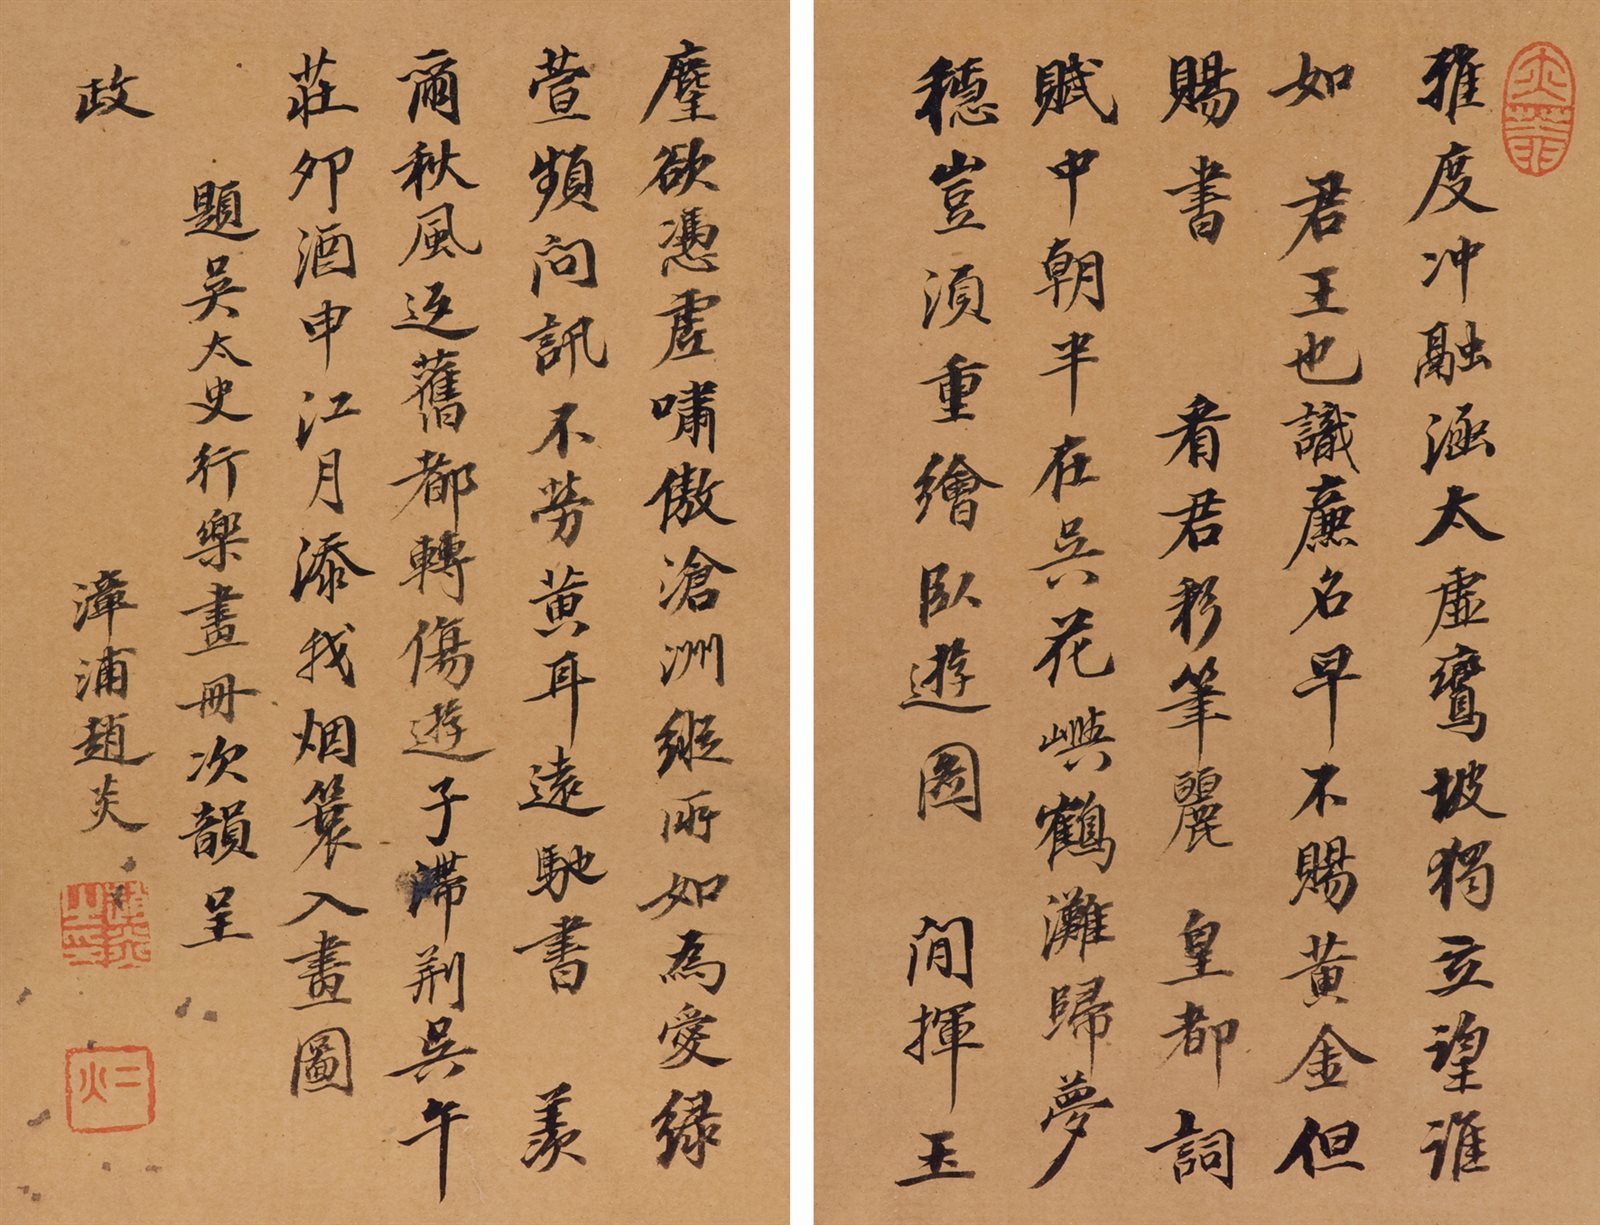 雅度冲融涵太虛鸞坡獨立望誰
如 君王也識廉名早不賜黃金但
賜書 看君彩筆麗 皇都詞
賦中朝半在吳花嶼鶴灘歸夢
穩豈須重繪臥遊圖 閒揮玉
麈欲憑虛嘯傲滄洲縱所如為愛綠
萱頻問訊不勞黃耳遠馳書 羨
爾秋風返舊都轉傷遊子滯荆吳午
莊卯酒申江月添我烟簑入畫圖
題吳太史行樂畫冊次韻呈
政 漳浦趙炎